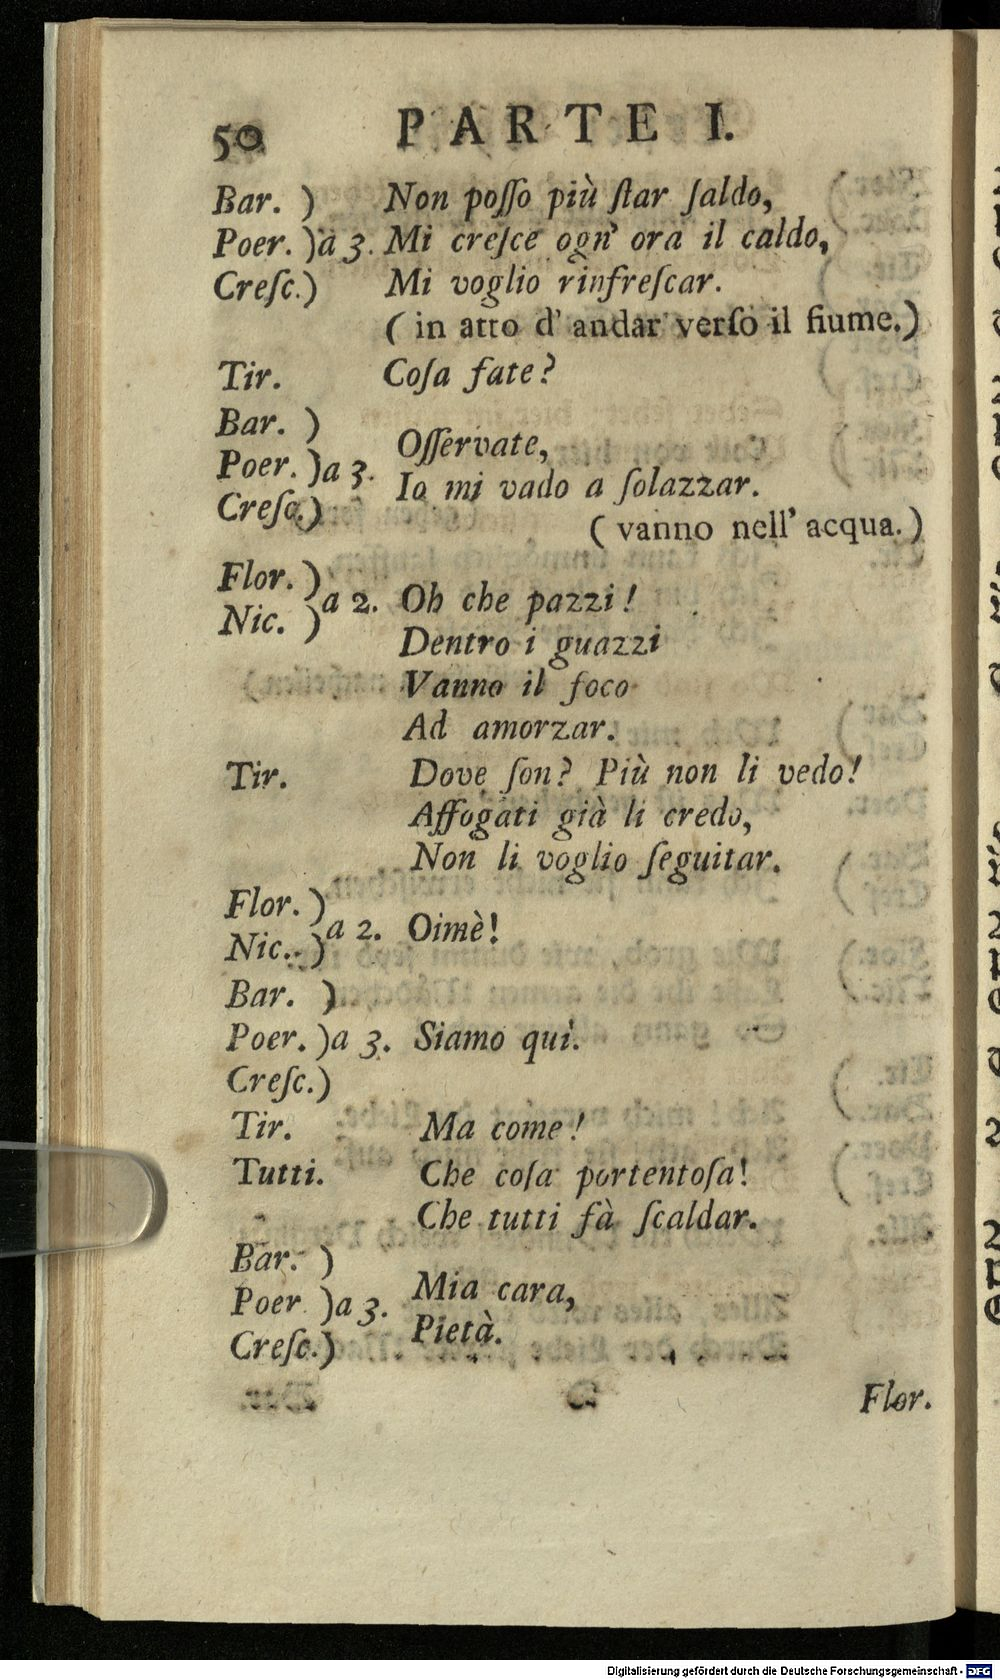 50 PARTE I.
Bar. ) Non poſſo più ſtar ſaldo,
Poer. )a 3. Mi creſce ogn' ora il caldo,
Creſc.) Mi voglio rinfreſcar.
( in atto d' andar verſo il fiume.)
Tir. Coſa fate?
Bar. )
Poer. )a 3. Oſſervate,
Creſc.) Io mi vado a ſolazzar.
( vanno nell' acqua. )
Flor. )
Nic. ) a 2. Oh che pazzi!
Dentro i guazzi
Vanno il foco
Ad amorzar.
Tir. Dove ſon? Più non li vedo!
Affogati già li credo,
Non li voglio ſeguitar.
Flor. )
Nic. ) a 2. Oimè!
Bar. )
Poer. )a 3. Siamo qui.
Creſc.)
Tir. Ma come!
Tutti. Che coſa portentoſa!
Che tutti fà ſcaldar.
Bar. )
Poer )a 3. Mia cara,
Creſc.) Pietà.
Flor.
Digitalisierung gefördert durch die Deutsche Forschungsgemeinschaft - DFG